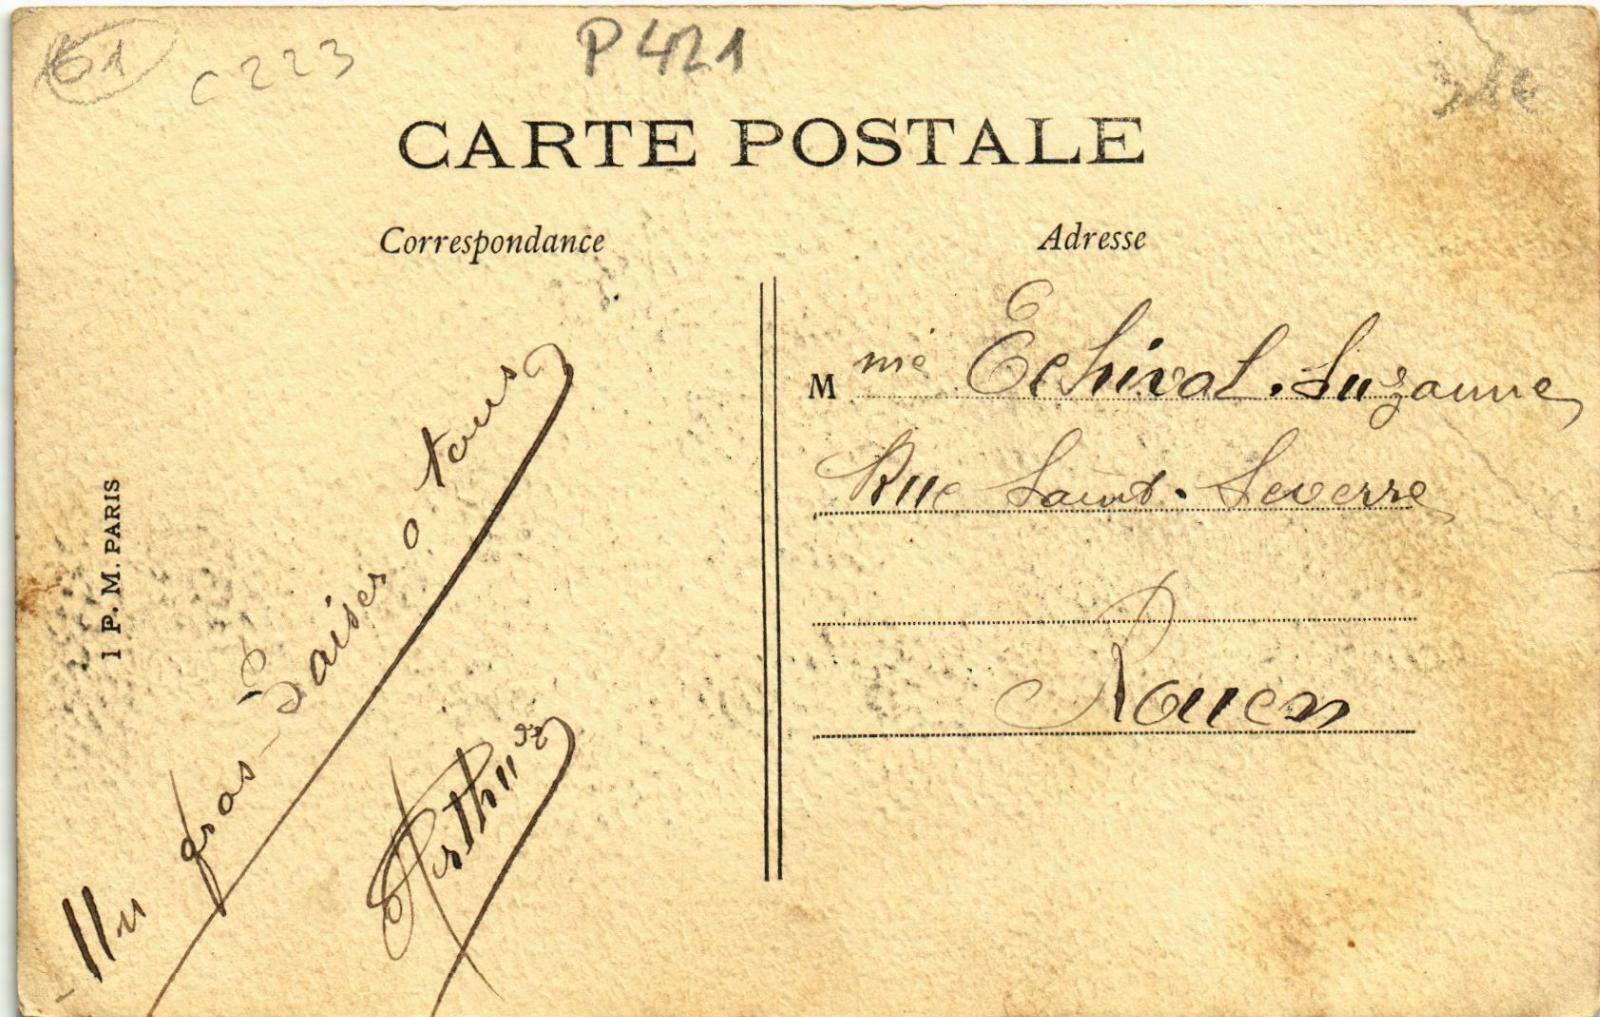 61
C 223
P 421
CARTE POSTALE
Correspondance
Adresse
Un gros Baiser a tous
Arthur
M me Echival. Suzanne
Rue Saint. Severre
Rouen
1 P. M. PARIS